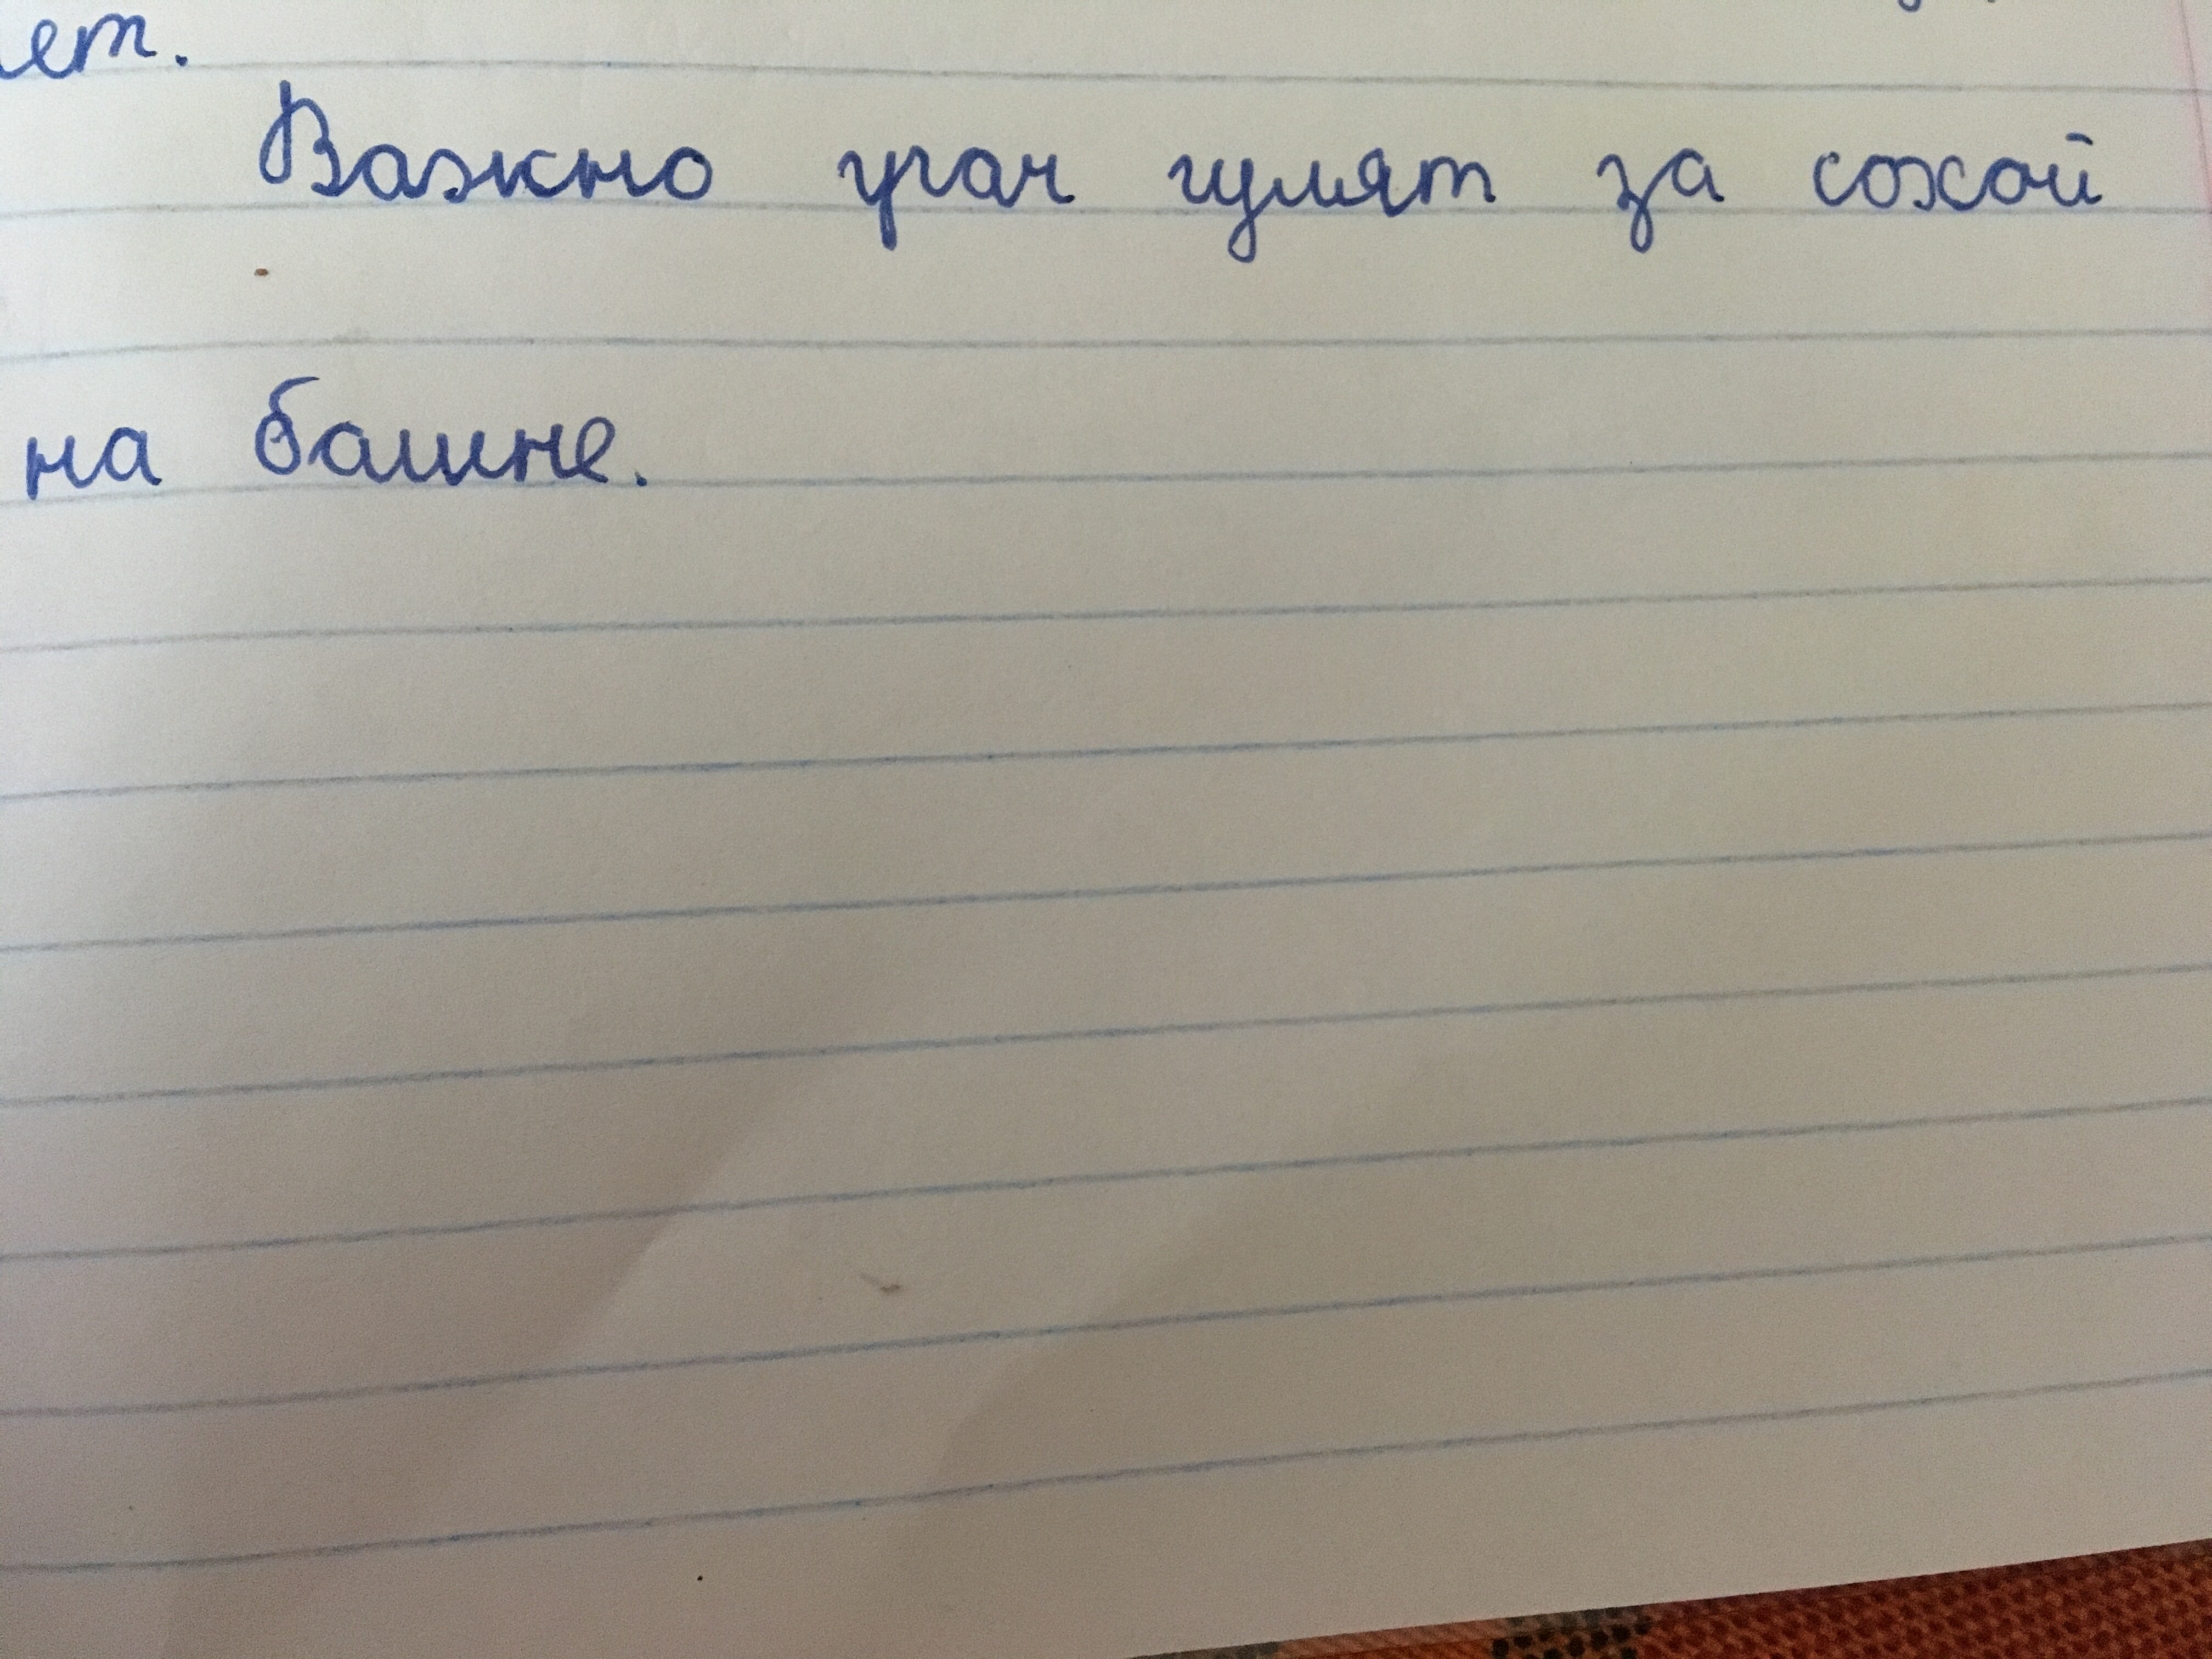 ет.
Важно угач гулят за сохой
на башне.